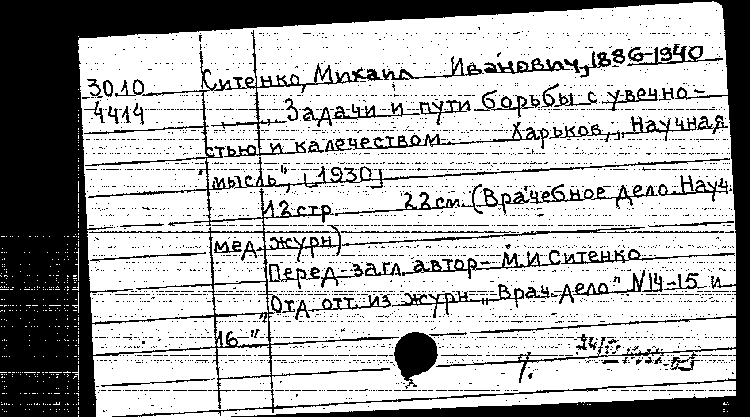 30.10 Ситенко, Михаил Иванович, 1886-1940
4414 „Задачи и пути борьбы с увечно-
стью и калечеством. Харьков, „Научная
мысль", [1930]
12 стр. 22 см. (Врачебное дело. Науч.
мед. журн)
Перед загл. автор- М.И Ситенко
„Отд. отт. из журн. „Врач. дело" N14-15 и
16"